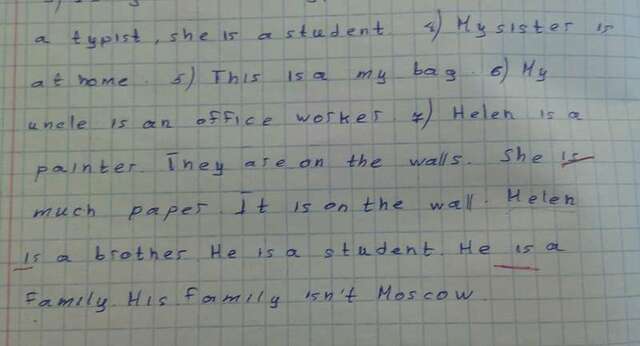 a typist, she is a student 4) My sister is
at home. 5) This is a my bag. 6) My
uncle is an office worker. 7) Helen is a
painter. They are on the walls. She is
much paper. It is on the wall. Helen
is a brother. He is a student. He is a
family. His family isn't Moscow.